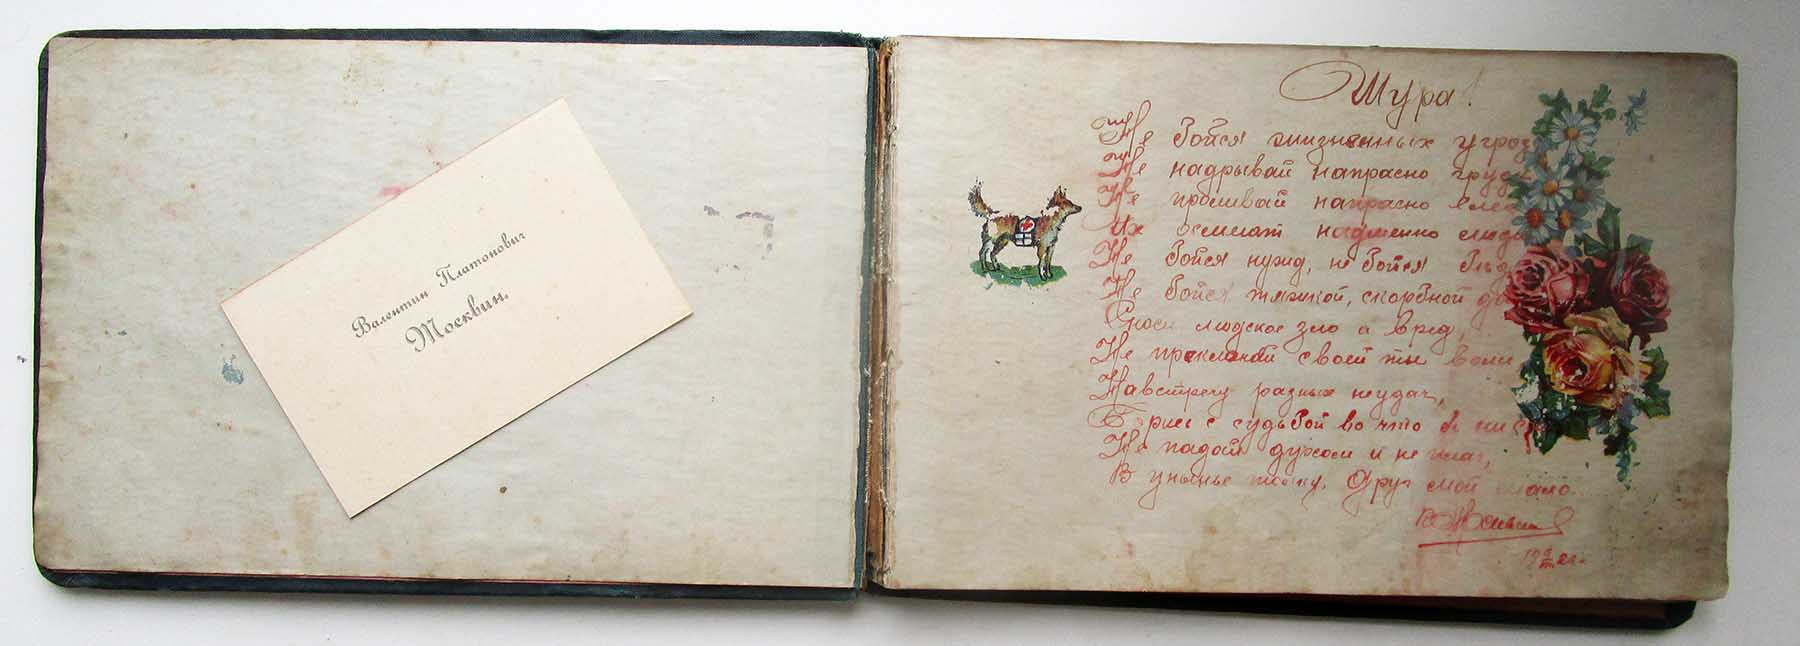 Валентин Платонович
Москвин.
Шура!
Не бойся жизненных угроз
Не надрывай напрасно груди
Не проливай напрасно слез
Их осмеют надменно люди
Не бойся нужд, не бойся бед
Не бойся тяжкой, скорбной
Сноси людское зло и вред,
Не проклинай своей ты воли
Навстречу разных неудач,
Борись с судьбой во что б ни
Не падай духом и не плач,
В унынье толку, друг мой мало.